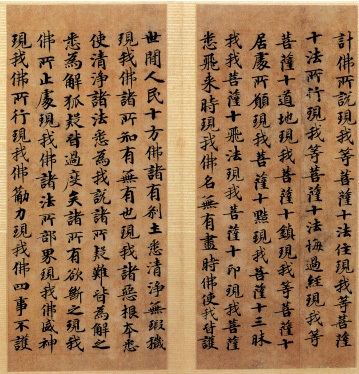 計佛所說現我等菩薩十法住現我等菩薩
十法所行現我等菩薩十法悔過經現我等
菩薩十道地現我等菩薩十鎮現我等菩薩十
居處所願現我等菩薩十黠現我等菩薩十三昧
我我菩薩十飛法現我菩薩十印現我菩薩
悉飛来時現我佛名無有盡時佛使我皆護
世間人民十方佛諸有剎土悉清淨無瑕穢
現我佛諸所知有無有也現我諸惡根本悉
使清淨諸法悉為我說諸所疑難皆為解之
悉為解狐疑皆過度矣諸所有欲斷之現我
佛所止處現我佛諸法所部界現我佛威神
現我佛所行現我佛勠力現我佛四事不護